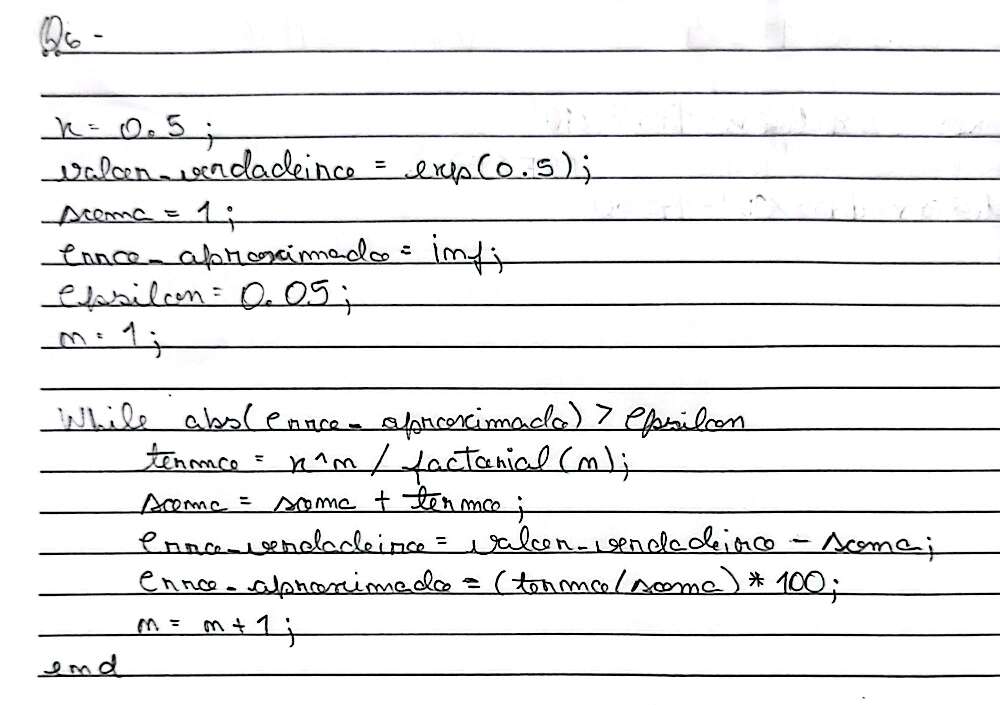 Q6 -
x = 0.5 ;
valor_verdadeiro = exp(0.5);
soma = 1 ;
erro_aproximado = inf;
epsilon = 0.05 ;
n = 1 ;
While abs(erro_aproximado) > epsilon
termo = x^n / factorial(n);
soma = soma + termo ;
erro_verdadeiro = valor_verdadeiro - soma;
erro_aproximado = (termo/soma) * 100;
n = n + 1 ;
end